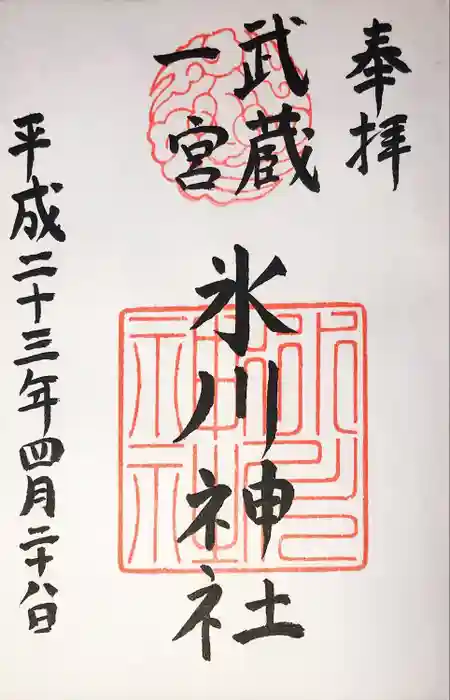 奉拝
武蔵
一宮
氷川神社
平成二十三年四月二十八日
氷川
神社